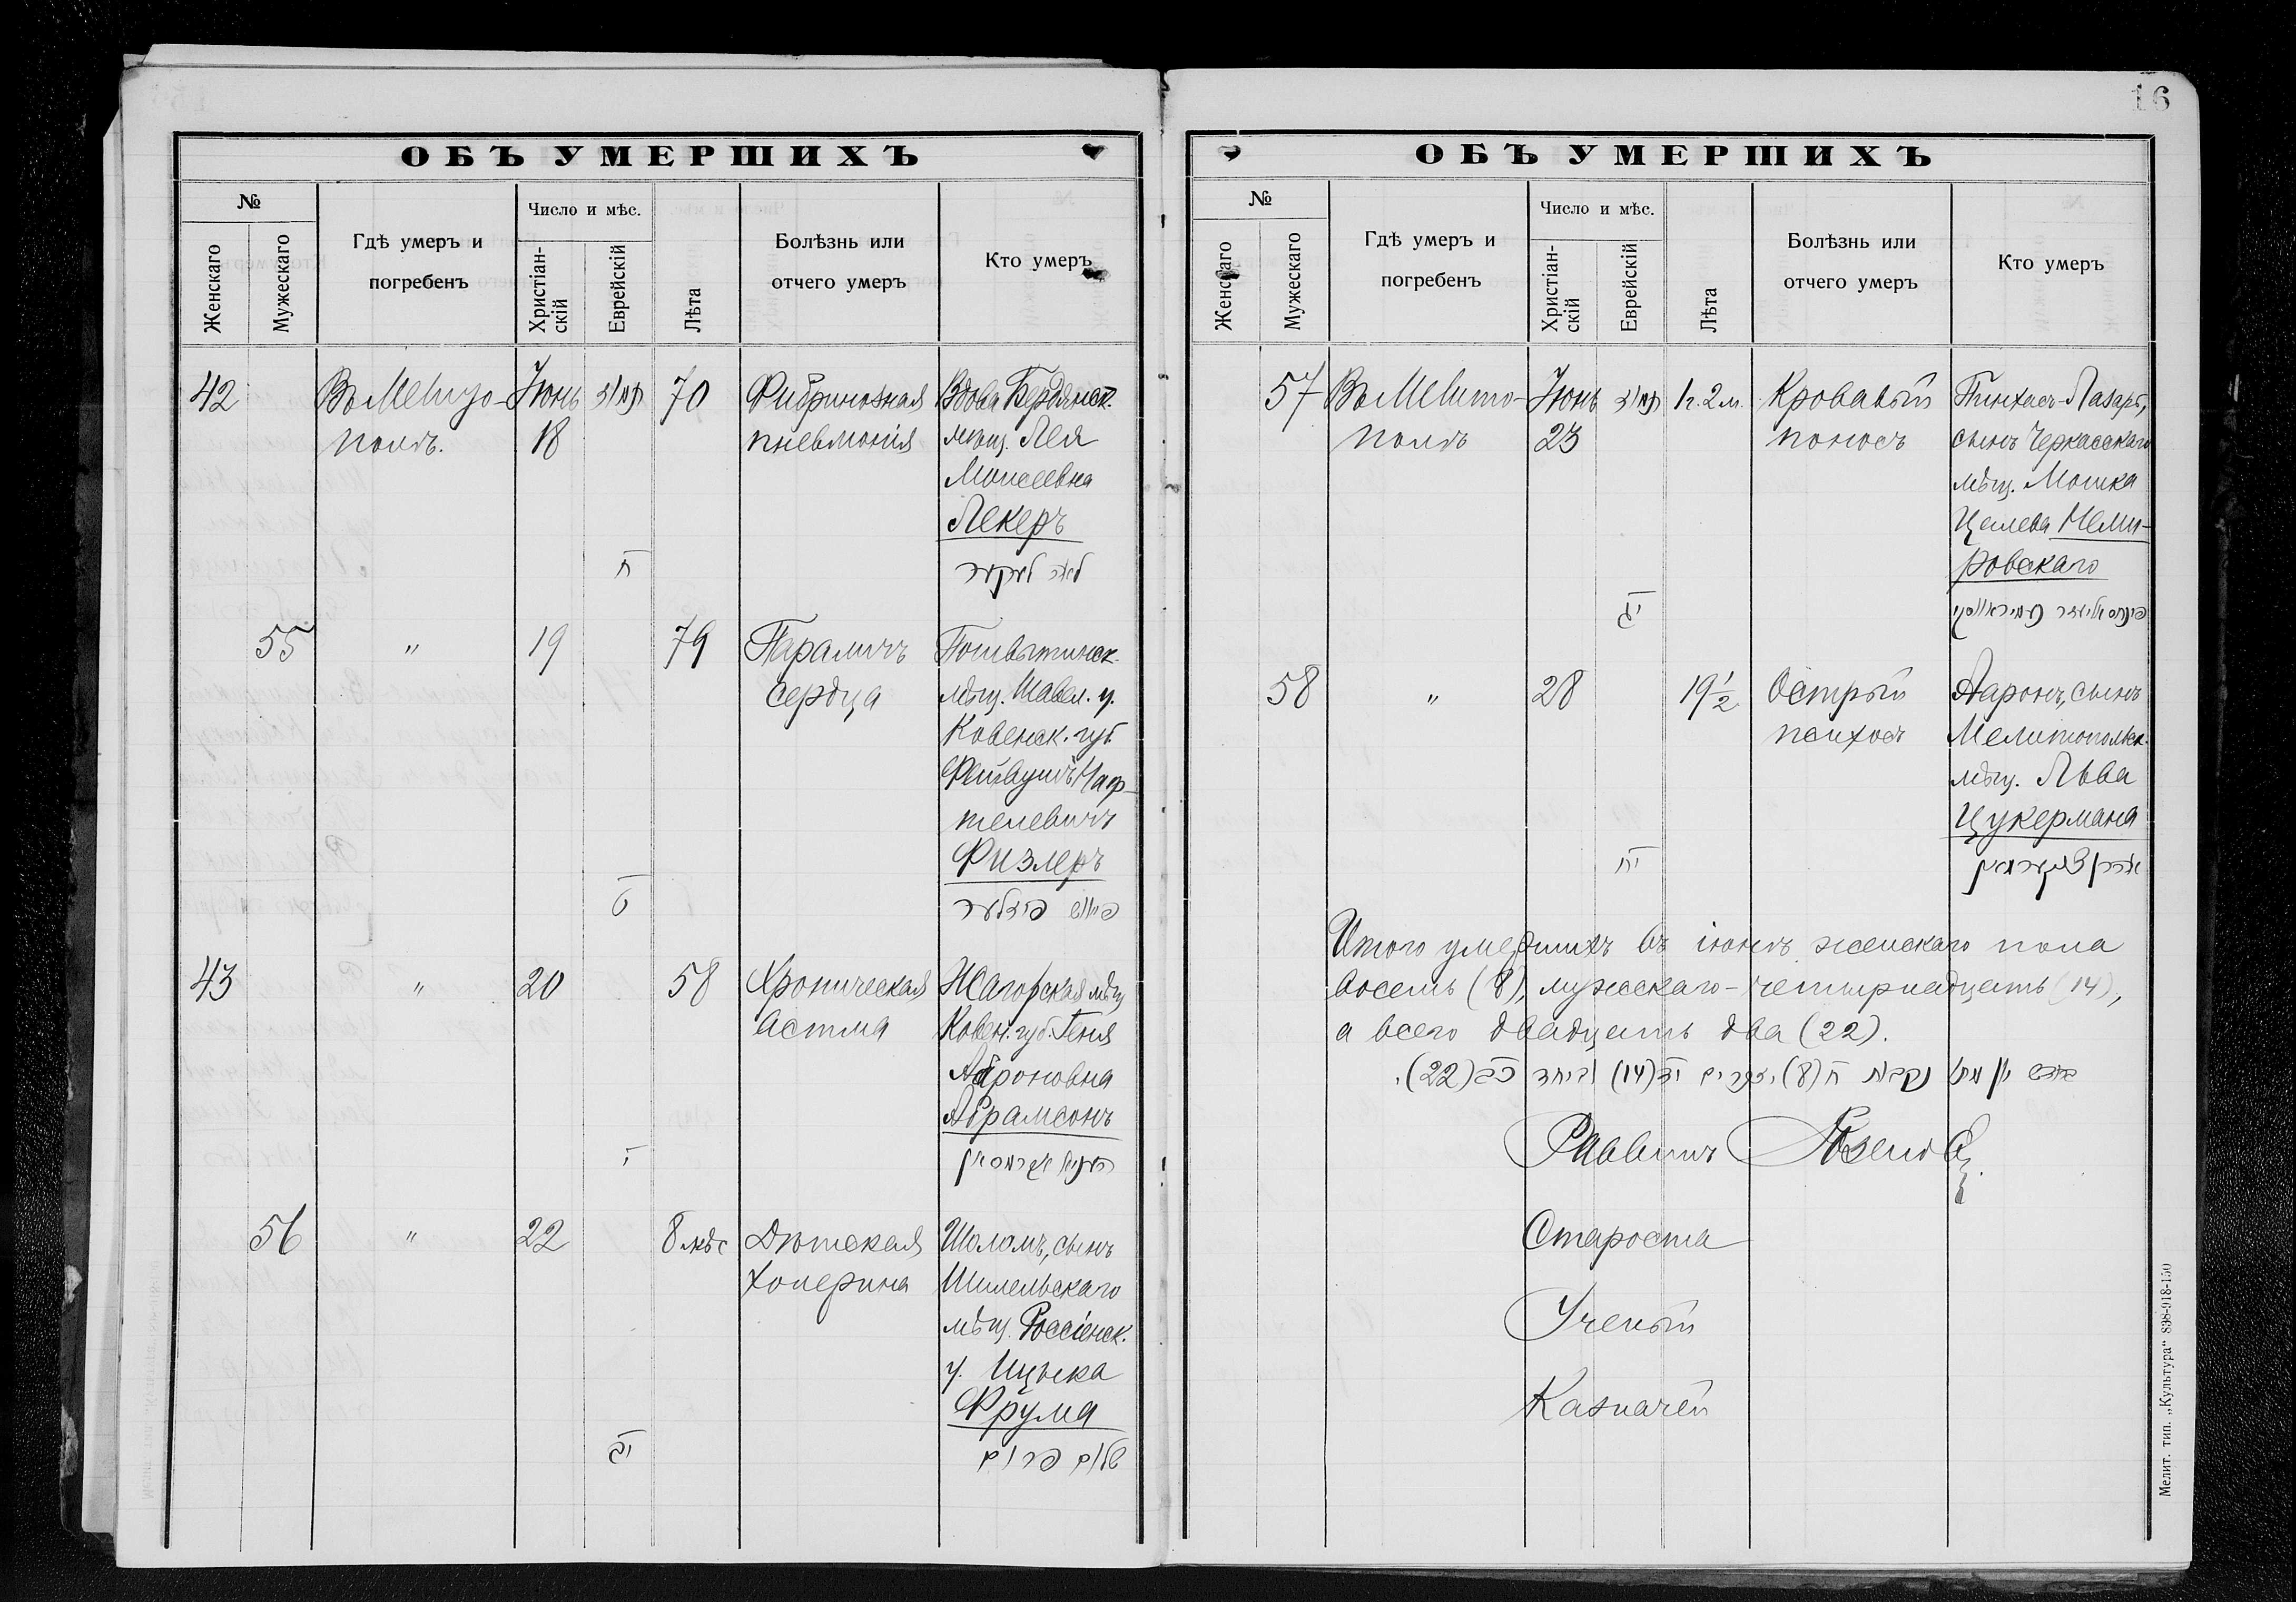 16
ОБЪ УМЕРШИХЪ
№
Женскаго
Мужескаго
Гдѣ умеръ и
погребенъ
Число и мѣс.
Христіан-
скій
Еврейскій
Лѣта
Болѣзнь или
отчего умеръ
Кто умеръ
42
Въ Мелито-
полѣ.
Іюнь
18
ח
70
Фибринозная
пневмонія
Вдова Бердянск.
мѣщ. Лея
Моисеевна
Лекеръ
לאה לעקער
55
"
19
ט
79
Параличъ
сердца
мѣщ. Шавел. у.
Ковенск. губ.
Фейвушъ Наф-
телевичъ
Физлеръ
פייוש פיזלער
43
"
20
י
58
Хроническая
астма
Жагорская мѣщ
Ковен. губ. Геня
Ароновна
Абрамсонъ
56
"
22
יב
8 мѣс
Дѣтская
холерина
Шоломъ, сынъ
Шилельскаго
мѣщ. Россіенск.
у. Ицыка
Фрума
שלום פרום
ОБЪ УМЕРШИХЪ
№
Женскаго
Мужескаго
Гдѣ умеръ и
погребенъ
Число и мѣс.
Христіан-
скій
Еврейскій
Лѣта
Болѣзнь или
отчего умеръ
Кто умеръ
57
Въ Мелито-
полѣ
Іюнь
23
יג
1 г. 2 м.
Кровавый
поносъ
Пинхасъ-Лазарь,
сынъ Черкасскаго
мѣщ. Мошка
Целева Неми-
ровскаго
58
"
28
יח
19 1/2
Острый
психозъ
Ааронъ, сынъ
Мелитопольск.
мѣщ. Льва
Цукермана
אהרן צוקערמאן
Итого умершихъ въ іюнѣ женскаго пола
восемь (8), мужескаго - четырнадцать (14),
а всего двадцать два (22).
נקבות ח (8) זכרים יד (14) וביחד כב (22).
Раввинъ
Староста
Ученый
Казначей
Мелит. тип. „Культура“ 838-918-150